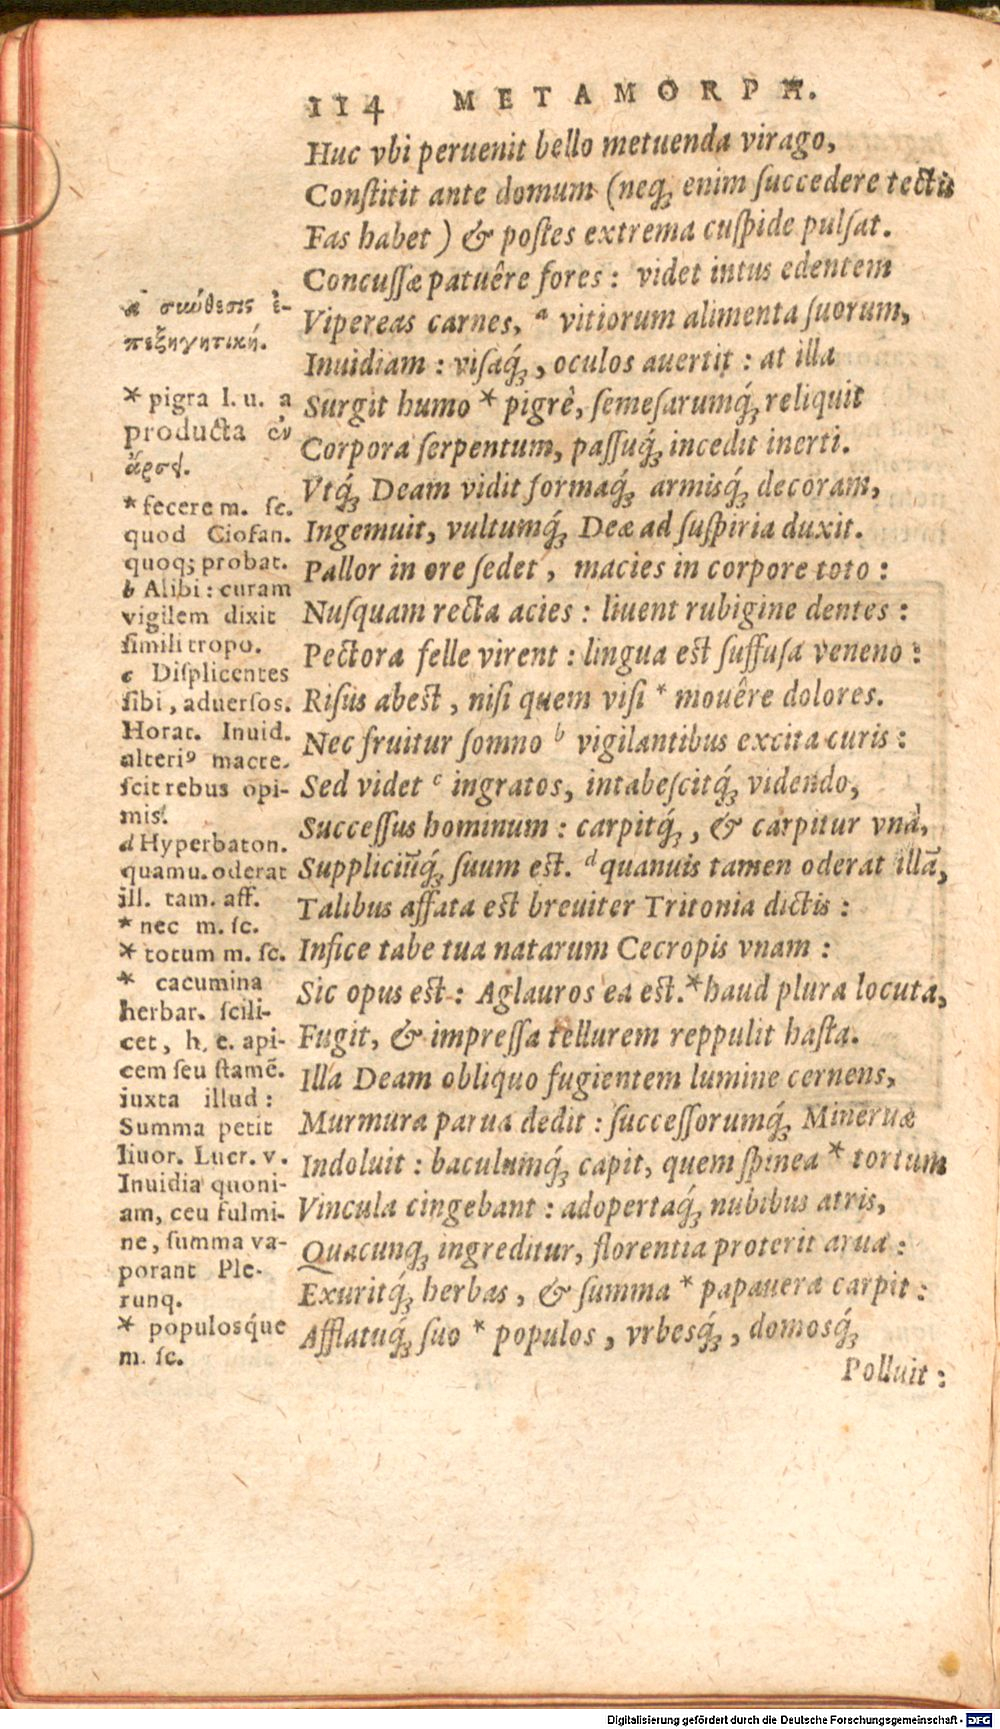 114 METAMORPH.
Huc vbi peruenit bello metuenda virago,
Conſtitit ante domum (neq́ꝫ enim ſuccedere tectis
Fas habet) & poſtes extrema cuſpide pulſat.
Concuſſæ patuêre fores: videt intus edentem
Vipereas carnes, ᵃ vitiorum alimenta ſuorum,
Inuidiam: viſaq́ꝫ, oculos auertit: at illa
Surgit humo * pigrè, ſemeſarumq́ꝫ reliquit
Corpora ſerpentum, paſſuq́ꝫ incedit inerti.
Vtq́ꝫ Deam vidit formaq́ꝫ armisq́ꝫ decoram,
Ingemuit, vultumq́ꝫ Deæ ad ſuſpiria duxit.
Pallor in ore ſedet, macies in corpore toto:
Nuſquam recta acies: liuent rubigine dentes:
Pectora felle virent: lingua eſt ſuffuſa veneno:
Riſus abeſt, niſi quem viſi * mouêre dolores.
Nec fruitur ſomno ᵇ vigilantibus excita curis:
Sed videt ᶜ ingratos, intabeſcitq́ꝫ videndo,
Succeſſus hominum: carpitq́ꝫ, & carpitur vnà,
Suppliciũq́ꝫ ſuum eſt. ᵈ quanuis tamen oderat illã,
Talibus affata eſt breuiter Tritonia dictis:
Infice tabe tua natarum Cecropis vnam:
Sic opus eſt: Aglauros ea eſt. * haud plura locuta,
Fugit, & impreſſa tellurem reppulit haſta.
Illa Deam obliquo fugientem lumine cernens,
Murmura parua dedit: ſucceſſorumq́ꝫ Mineruæ
Indoluit: baculumq́ꝫ capit, quem ſpinea * tortum
Vincula cingebant: adopertaq́ꝫ nubibus atris,
Quacunq́ꝫ ingreditur, florentia proterit arua:
Exuritq́ꝫ herbas, & ſumma * papauera carpit:
Afflatuq́ꝫ ſuo * populos, vrbesq́ꝫ, domosq́ꝫ
Polluit:
a σιώθεσις ἐ-
πεξηγητική.
* pigra l. u. a
producta ἐν
ἄρσει.
* fecere m. ſc.
quod Ciofan.
quoqꝫ probat.
b Alibi: curam
vigilem dixit
ſimili tropo.
c Diſplicentes
ſibi, aduerſos.
Horat. Inuid.
alteriꝰ macre-
ſcit rebus opi-
mis.
d Hyperbaton.
quamu. oderat
ill. tam. aff.
* nec m. ſc.
* totum m. ſc.
* cacumina
herbar. ſcili-
cet, h. e. api-
cem ſeu ſtamẽ.
iuxta illud:
Summa petit
liuor. Lucr. v.
Inuidia quoni-
am, ceu fulmi-
ne, ſumma va-
porant Ple-
runq.
* populosq́ue
m. ſc.
Digitalisierung gefördert durch die Deutsche Forschungsgemeinschaft - DFG